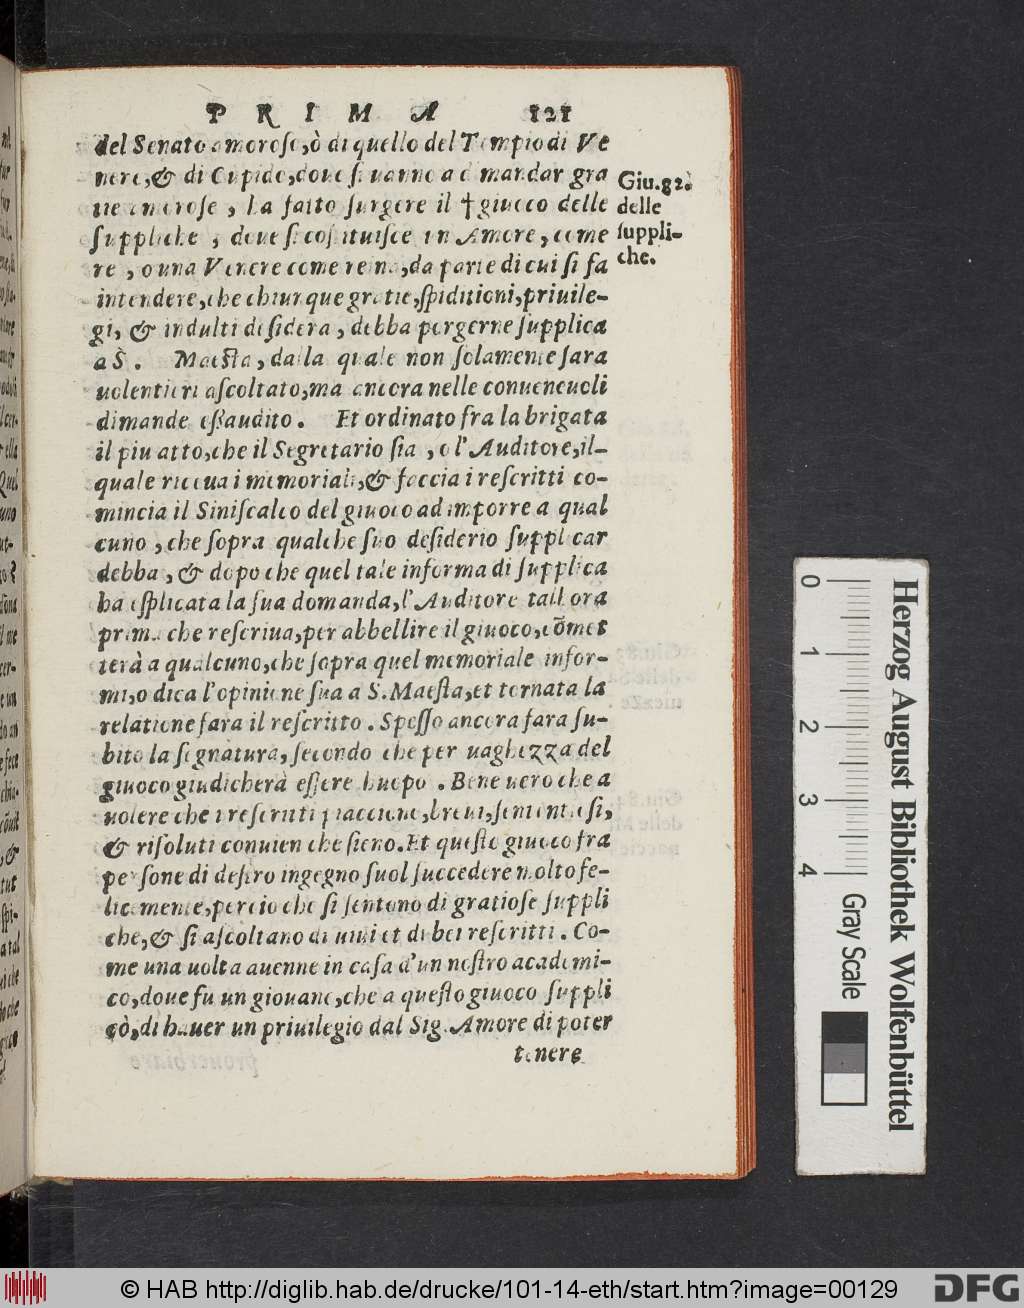 PRIMA 121
del Senato amoroso, ò di quello del Tempio di Ve
nere, & di Cupido, doue si uanno a dimandar gra
tie amorose, ha fatto surgere il † giuoco delle
suppliche, doue si costituisce un Amore, come
re, o una Venere come reina, da parte di cui si fa
intendere, che chiunque gratie, spiditioni, priuile-
gi, & indulti desidera, debba porgerne supplica
a S. Maestà, dalla quale non solamente sara
uolentieri ascoltato, ma ancora nelle conueneuoli
dimande essaudito. Et ordinato fra la brigata
il piu atto, che il Segretario sia, o l'Auditore, il-
quale riceua i memoriali, & faccia i rescritti co-
mincia il Siniscalco del giuoco ad imporre a qual
cuno, che sopra qualche suo desiderio supplicar
debba, & dopo che quel tale in forma di supplica
ha esplicata la sua domanda, l'Auditore tall'ora
prima che rescriua, per abbellire il giuoco, cõmet
terà a qualcuno, che sopra quel memoriale infor-
mi, o dica l'opinione sua a S. Maesta, et tornata la
relatione fara il rescritto. Spesso ancora fara su-
bito la segnatura, secondo che per uaghezza del
giuoco giudicherà essere huopo. Bene uero che a
uolere che i rescritti piacciano, breui, sententiosi,
& risoluti conuien che sieno. Et questo giuoco fra
persone di destro ingegno suol succedere molto fe-
licemente, percio che si sentono di gratiose suppli
che, & si ascoltano di uiui et di bei rescritti. Co-
me una uolta auenne in casa d'un nostro academi-
co, doue fu un giouane, che a questo giuoco suppli
cò, di hauer un priuilegio dal Sig. Amore di poter
tenere
Giu. 82.
delle
suppli-
che.
0 1 2 3 4
Gray Scale
Herzog August Bibliothek Wolfenbüttel
© HAB http://diglib.hab.de/drucke/101-14-eth/start.htm?image=00129
DFG